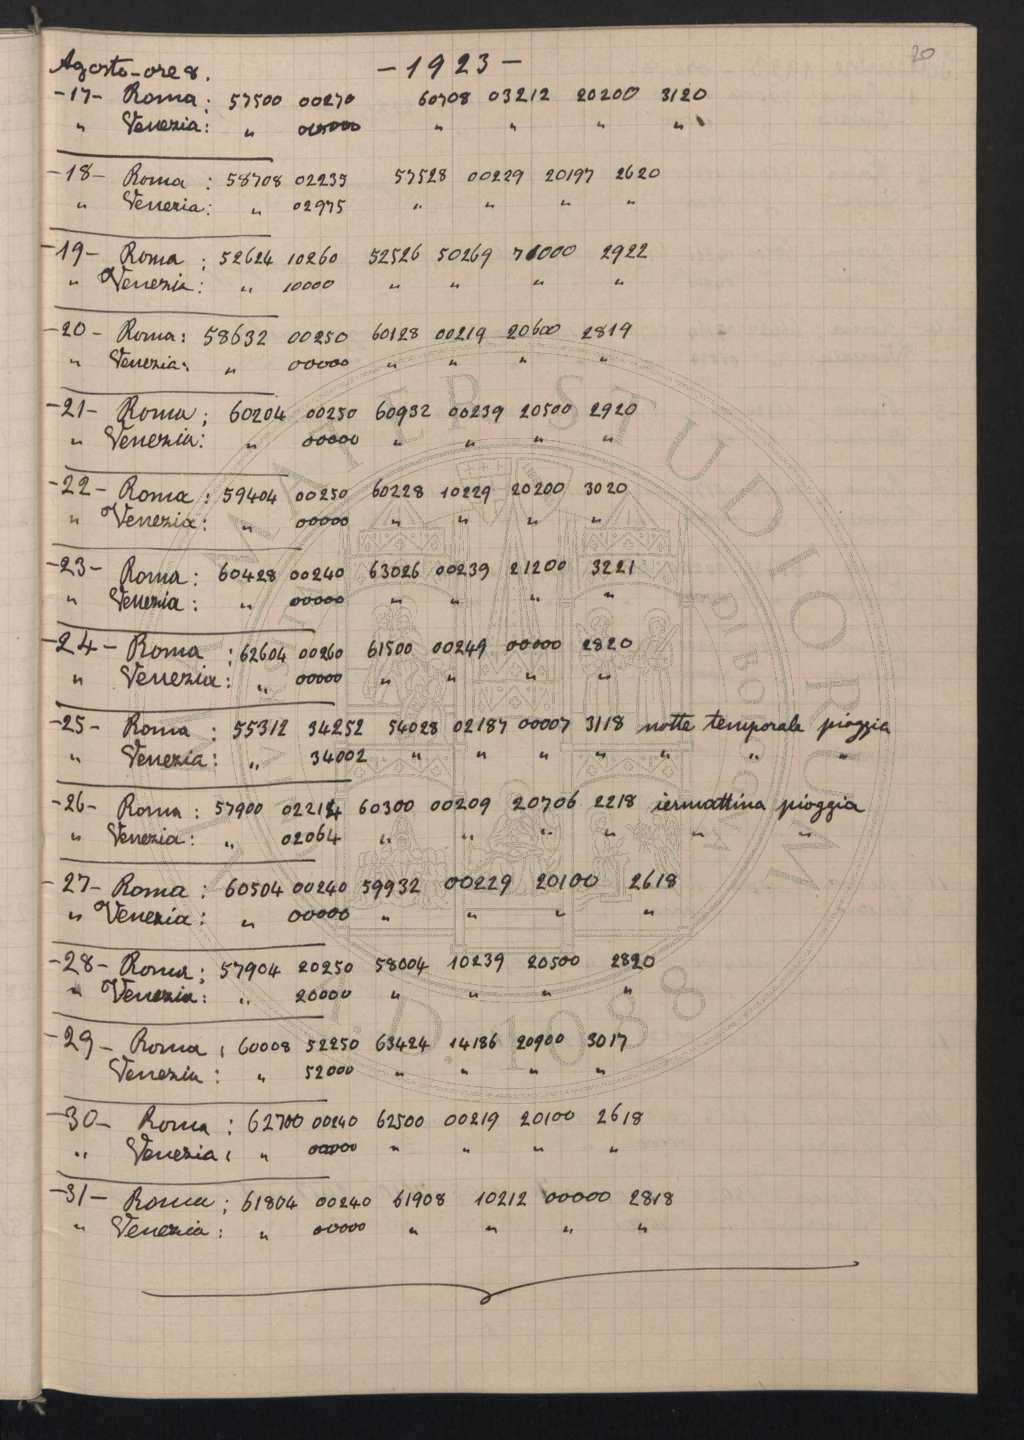 20
Agosto - ore 8. - 1923 -
-17- Roma : 57500 00270 60708 03212 20200 3120
" Venezia : " " " " "
-18- Roma : 58708 02235 57528 00229 20197 2620
" Venezia : " 02975 " " " "
-19- Roma : 52624 10260 52526 50269 71000 2922
" Venezia : " 10000 " " " "
-20- Roma : 58632 00250 60128 00219 20600 2819
" Venezia : " 00000 " " " "
-21- Roma ; 60204 00250 60932 00239 20500 2920
" Venezia : " 00000 " " " "
-22- Roma : 59404 00250 60228 10229 20200 3020
" Venezia : " 00000 " " " "
-23- Roma : 60428 00240 63026 00239 21200 3221
" Venezia : " 00000 " " " "
-24- Roma : 62604 00260 61500 00249 00000 2820
" Venezia : " 00000 " " " "
-25- Roma : 55312 34252 54028 02187 00007 3118 notte temporale pioggia
" Venezia : " 34002 " " " " " " "
-26- Roma : 57900 02214 60300 00209 20706 2218 iermattina pioggia
" Venezia : " 02064 " " " " " "
-27- Roma : 60504 00240 59932 00229 20100 2618
" Venezia : " 00000 " " " "
-28- Roma ; 57904 20250 58004 10239 20500 2820
" Venezia : " 20000 " " " "
-29- Roma : 60008 52250 63424 14186 20900 3017
Venezia : " 52000 " " " "
-30- Roma : 62700 00240 62500 00219 20100 2618
" Venezia : " 00000 " " " "
-31- Roma ; 61804 00240 61908 10212 00000 2818
" Venezia : " 00000 " " " "
ALMA MATER STUDIORUM
A.D. 1088